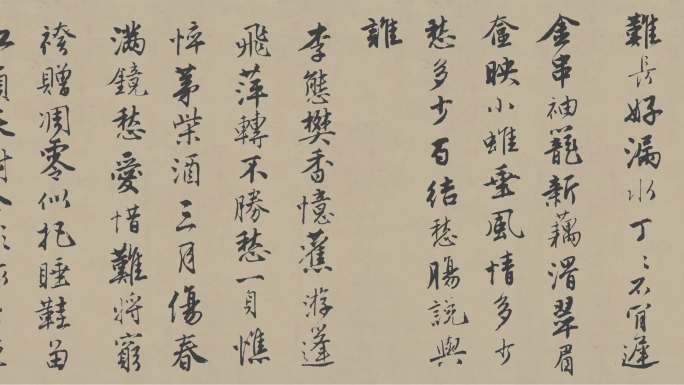 難長好漏水丁〻不肯遲
金串袖籠新藕滑翠眉
奩映小蜼垂風情多少
愁多少百結愁腸說與
誰
李態樊香憶舊游蓬
飛萍轉不勝愁一身憔
悴茅柴酒三月傷春
滿鏡愁愛惜難將窮
袴贈凋零似把睡鞋留